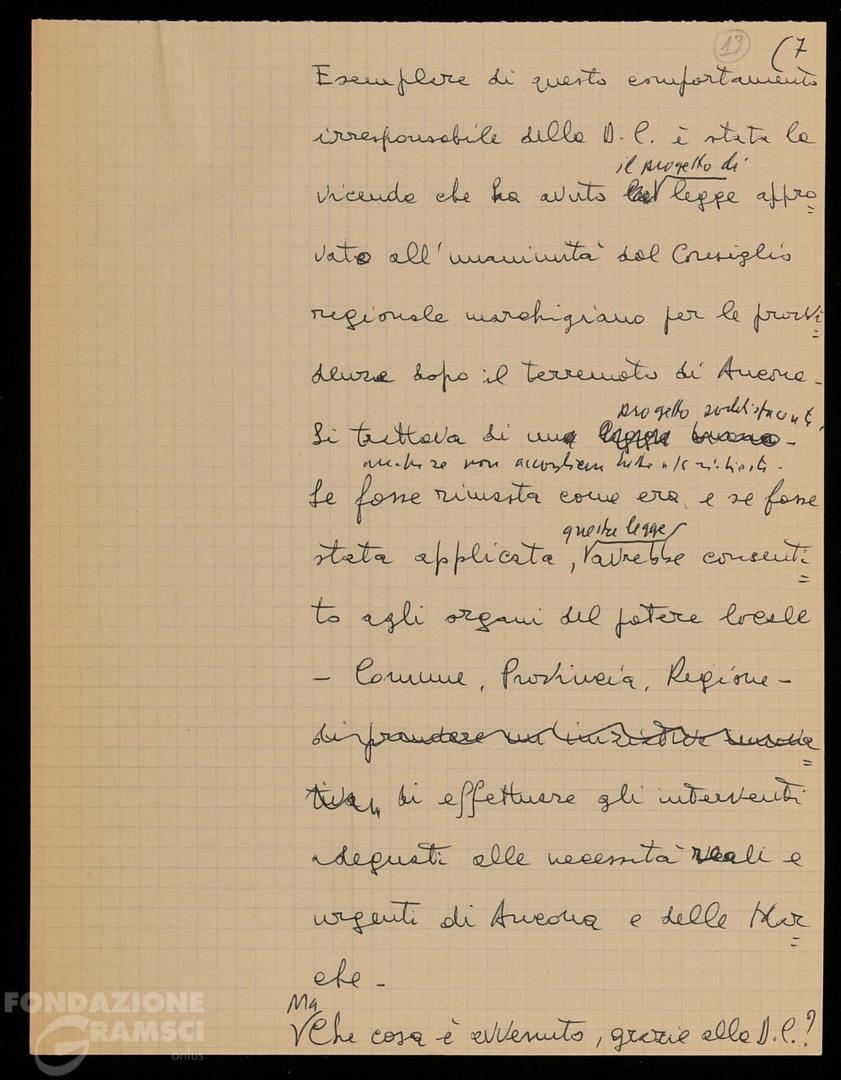 13
(7
Esemplare di questo comportamento
irresponsabile della D.C. è stata la
il progetto di
vicenda che ha avuto legge appro=
vato all'unanimità dal Consiglio
regionale marchigiano per le provvi=
denze dopo il terremoto di Ancona.
progetto soddisfacente,
Si trattava di un legge buona -
anche se non accoglieva tutte le richieste.
Se fosse rimasta come era e se fosse
questa legge
stata applicata, avrebbe consenti=
to agli organi del potere locale
- Comune, Provincia, Regione -
di prendere un'iniziativa
tiva, di effettuare gli interventi
adeguati alle necessità reali e
urgenti di Ancona e delle Mar=
che -
Ma
Che cosa è avvenuto, grazie alla D.C.?
FONDAZIONE
GRAMSCI
onlus